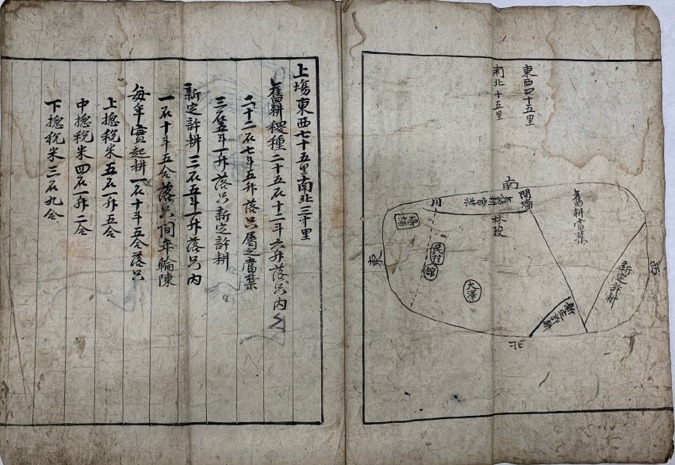 東西四十五里
南北十五里
南
間墻
川
林藪
舊耕當禁
民村
大澤
新定許耕
新定許耕
東
西
北
上場東西七十五里南北三十里
舊耕稷種二十五石十二斗六升落只內
二十二石七斗五升落只屬之當禁
三石五斗一升落只新定許耕
新定許耕三石五斗一升落只內
一石十斗五合落只間年輪陳
每年實起耕一石十斗五合落只
上摠稅米五石一升五合
中摠稅米四石一升二合
下摠稅米三石九合